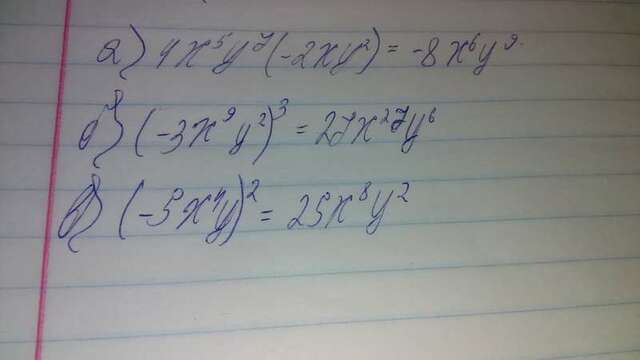 а) 4x⁵y⁷(-2xy²) = -8x⁶y⁹
б) (-3x⁹y²)³ = 27x²⁷y⁶
в) (-5x⁴y)² = 25x⁸y²